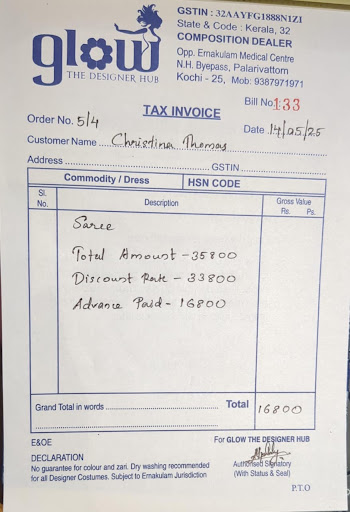 GSTIN : 32AAYFG1888N1ZI
State & Code : Kerala, 32
COMPOSITION DEALER
glow
THE DESIGNER HUB
Opp. Ernakulam Medical Centre
N.H. Byepass, Palarivattom
Kochi - 25, Mob: 9387971971
TAX INVOICE
Bill No. 133
Order No. 514
Date 14/05/25
Customer Name Christina Thomas
Address GSTIN
Commodity / Dress HSN CODE
Sl. No. Description Gross Value Rs. Ps.
Saree
Total Amount - 35800
Discount Rate - 33800
Advance Paid - 16800
Grand Total in words Total 16800
E&OE For GLOW THE DESIGNER HUB
DECLARATION
No guarantee for colour and zari. Dry washing recommended
for all Designer Costumes. Subject to Ernakulam Jurisdiction
Authorised Signatory
(With Status & Seal)
P.T.O